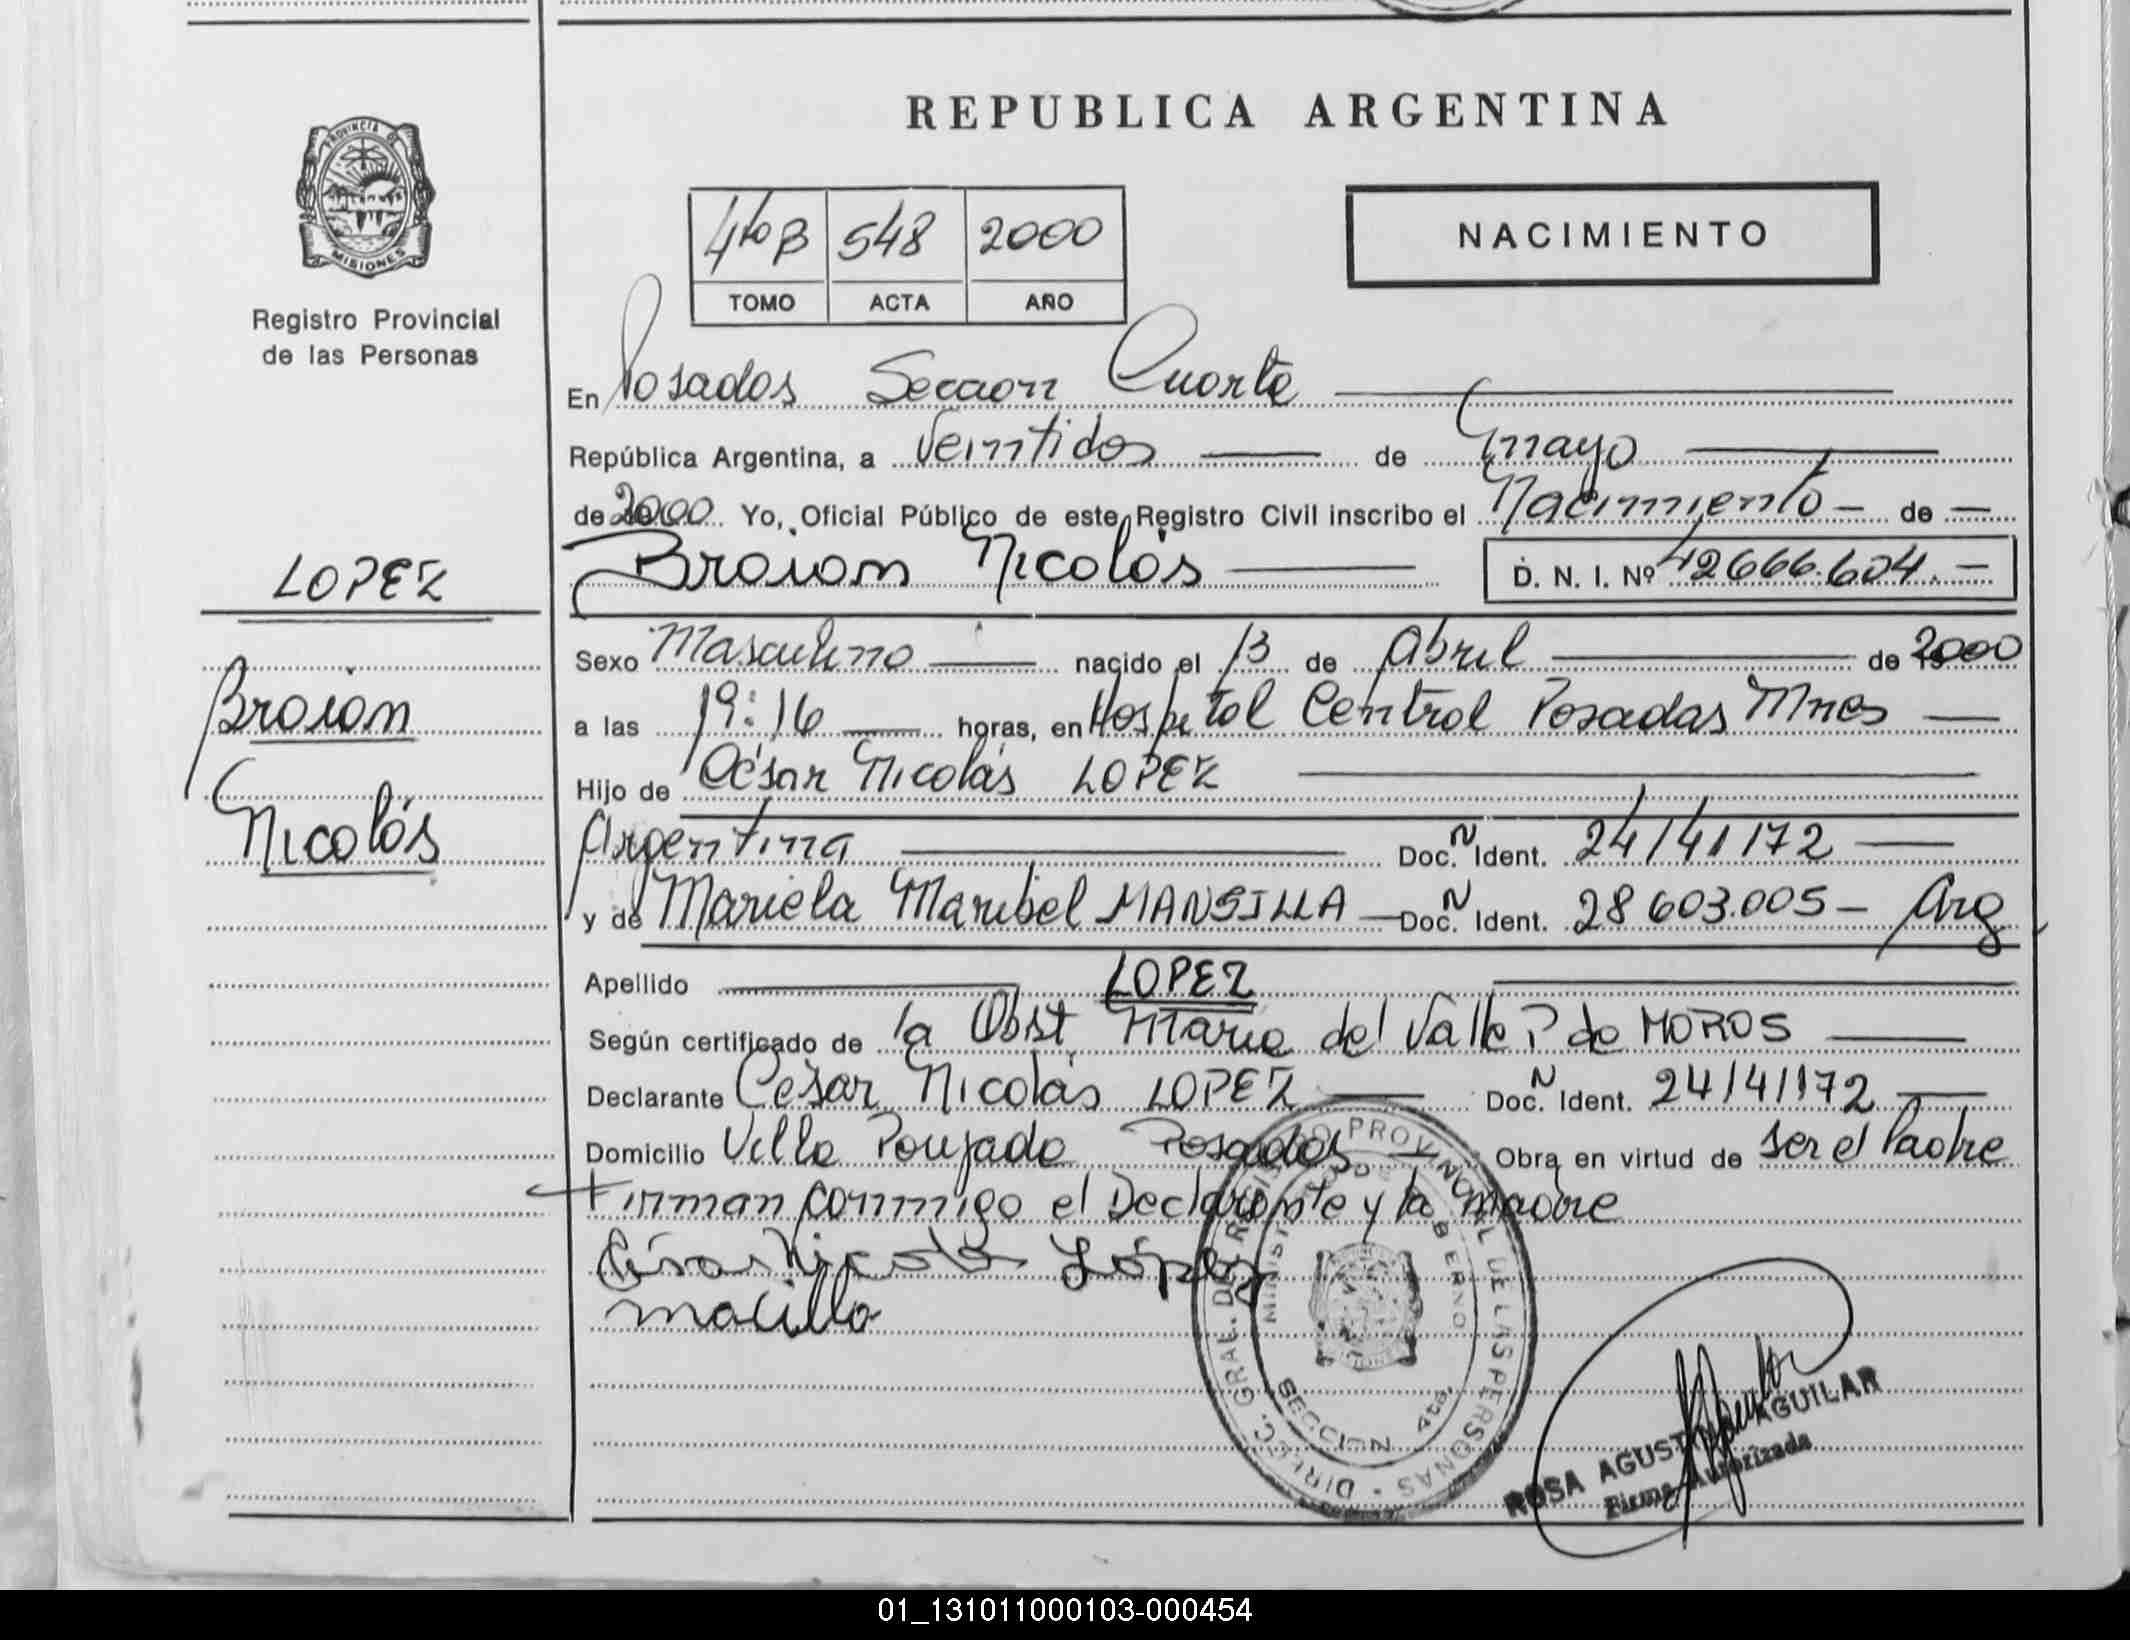 REPUBLICA ARGENTINA
PROVINCIA DE MISIONES
Registro Provincial
de las Personas
4to B 548 2000
TOMO ACTA AÑO
NACIMIENTO
En Posadas Sección Cuarta
República Argentina, a Veintidos de mayo
de 2000 Yo, Oficial Público de este Registro Civil inscribo el Nacimiento de
Braian Nicolás D. N. I. Nº 42666.604.-
LOPEZ
Braian
Nicolás
Sexo Masculino nacido el 13 de Abril de 2000
a las 19:16 horas, en Hospital Central Posadas Mnes
Hijo de César Nicolás LOPEZ
Argentina Doc. N Ident. 24141172
y de Mariela Maribel MANSILLA Doc. N Ident. 28603.005- Arg
Apellido LOPEZ
Según certificado de la Obst. Maria del Valle P de MOROS
Declarante César Nicolás LOPEZ Doc. N Ident. 24141172
Domicilio Villa Poujade Posadas Obra en virtud de ser el Padre
Firman conmigo el Declarante y la madre
César Nicolás López
DIREC. GRAL. DEL REGISTRO PROVINCIAL DE LAS PERSONAS
MINISTERIO DE GOBIERNO
SECCION 4ta.
ROSA AGUSTINA AGUILAR
Firma Autorizada
01_131011000103-000454